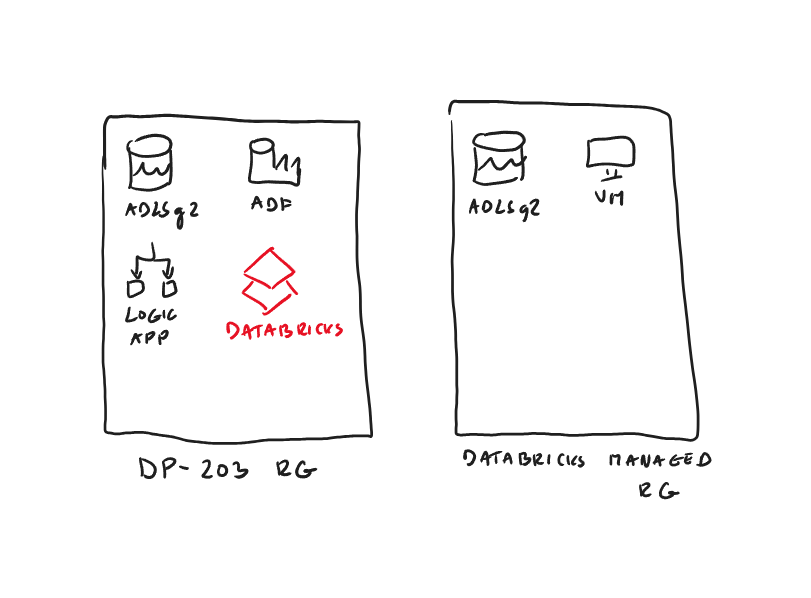 ADLSg2
ADF
LOGIC
APP
DATABRICKS
DP-203 RG
ADLSg2
VM
DATABRICKS MANAGED
RG